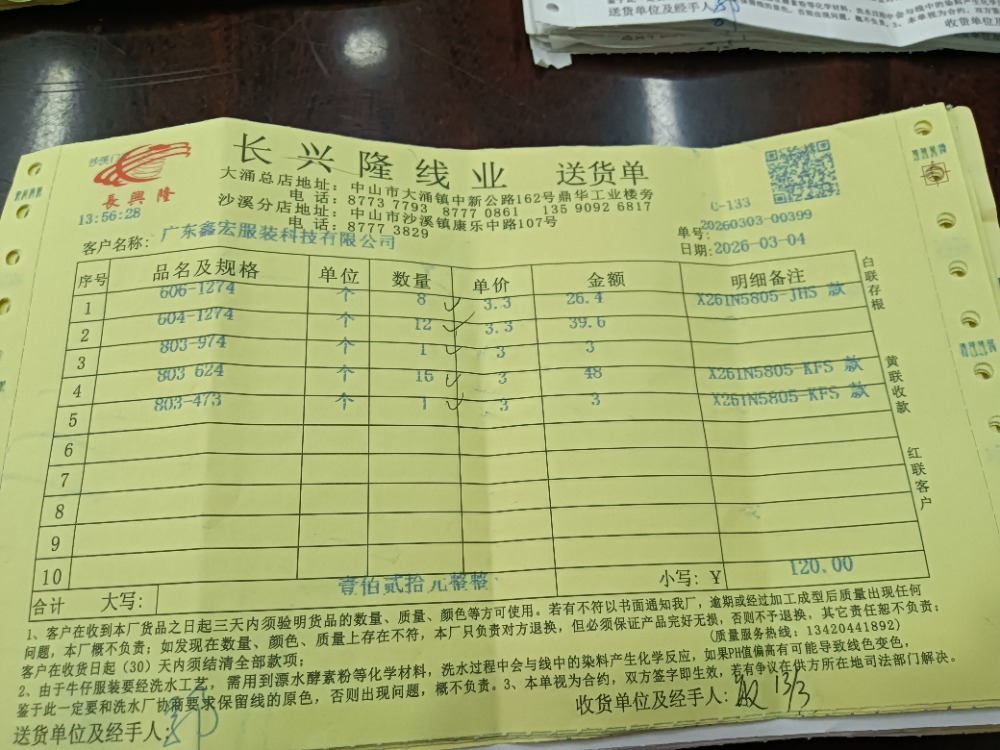 送货单位及经手人
沙溪门
長興隆
13:56:28
长兴隆线业 送货单
大涌总店地址：中山市大涌镇中新公路162号鼎华工业楼旁
电 话：8773 7793 8777 0861 135 9092 6817
沙溪分店地址：中山市沙溪镇康乐中路107号
电 话：8777 3829
C-133
单号：20260303-00399
客户名称：广东鑫宏服装科技有限公司
日期：2026-03-04
序号 品名及规格 单位 数量 单价 金额 明细备注
1 606-1274 个 8 3.3 26.4 X261N5805-JHS 款
2 604-1274 个 12 3.3 39.6
3 803-974 个 1 3 3
4 803 624 个 16 3 48 X261N5805-KFS 款
5 803-473 个 1 3 3 X261N5805-KFS 款
6
7
8
9
10
合计 大写：壹佰贰拾元整整 小写：￥ 120.00
白联存根
黄联收款
红联客户
1、客户在收到本厂货品之日起三天内须验明货品的数量、质量、颜色等方可使用。若有不符以书面通知我厂，逾期或经过加工成型后质量出现任何
问题，本厂概不负责；如发现在数量、颜色、质量上存在不符，本厂只负责对方退换，但必须保证产品完好无损，否则不予退换，其它责任恕不负责；
客户在收货日起（30）天内须结清全部款项；
(质量服务热线：13420441892)
2、由于牛仔服装要经洗水工艺，需用到漂水酵素粉等化学材料，洗水过程中会与线中的染料产生化学反应，如果PH值偏高有可能导致线色变色，
鉴于此一定要和洗水厂协商要求保留线的原色，否则出现问题，概不负责。3、本单视为合约，双方签字即生效，若有争议在供方所在地司法部门解决。
送货单位及经手人：
收货单位及经手人： 13/3